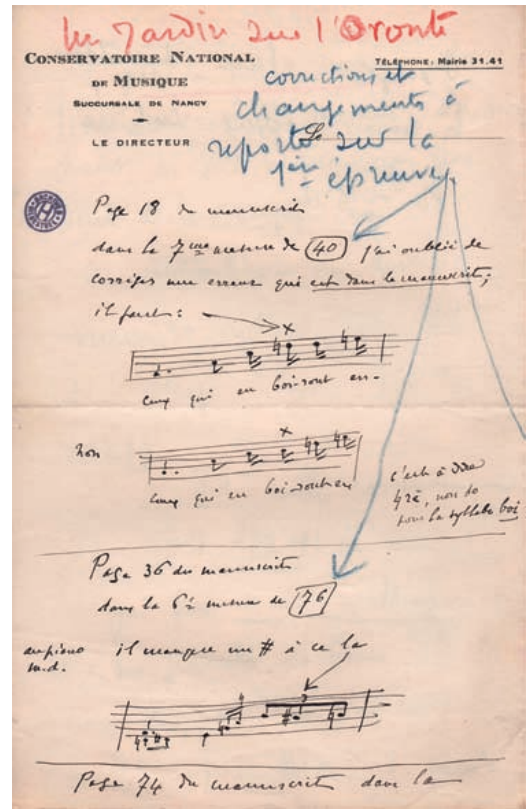 Un Jardin sur l'Oronte
CONSERVATOIRE NATIONAL
DE MUSIQUE
SUCCURSALE DE NANCY
LE DIRECTEUR
TÉLÉPHONE : Mairie 31.41
Le
corrections et
changements à
reporter sur la
1ère épreuve
Page 18 du manuscrit
dans la 7me mesure de 40 j'ai oublié de
corriger une erreur qui est dans le manuscrit;
il faut :
ceux qui en boi-ront en-
non
ceux qui en boi-ront en
c'est à dire
♮ ré, non do
sous la syllabe boi
Page 36 du manuscrit
dans la 6e mesure de 76
au piano
m.d.
il manque un # à ce la
Page 74 du manuscrit dans la